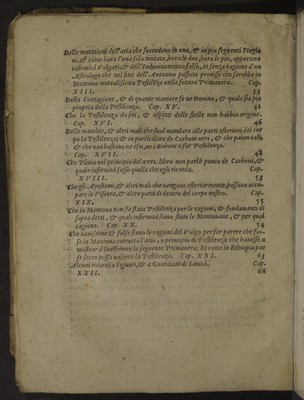 Delle mutationi dell'aria che succedono in una, & in piu seguenti Stagio
ni, & come hora l'una sola mutata, hora le due, hora le piu, apportino
infirmità Volgari, & dell'Indovinamento falso, & senza ragione d'un
Astrologo che nel fine dell'Autunno passato predisse che sarebbe in
Mantoua mortalissima Pestilẽza nella futura Primavera. Cap.
XIIII. 33
Della Contagione, & di quante maniere se ne trovino, & quale sia piu
propria della Pestilenza. Cap. XV. 41
Che la Pestilenza da siti, & aspetti delle stelle non habbia origine.
Cap. XVI. 46
Delle macchie, & altri mali che suol mandare alle parti esteriori del cor
po la Pestilenza; & in particulare de Carboni veri, & che paion tali,
& che non bastano ne essi, ne i Buboni a far Pestilenza.
Cap. XVII. 48
Che Plinio nel principio del XXVI. libro non parlò punto de Carboni, &
quale infirmità fusse quella che egli ricorda. Cap.
XVIII. 53
Che gli Apostemi, & altri mali che vengono esteriormente, possano occu-
pare le Viscere, & altre parti di dentro del corpo nostro. Cap.
XIX. 55
Che in Mantoua non sia stata Pestilenza per le ragioni, & fundamenti di
sopra detti, & quali infirmità siano state le Mantouane, & per qual
ragione. Cap. XX. 54
Che vanissime & false siano le ragioni del Vulgo per far parere che fos-
se in Mantoua corrotta l'aria, o principio di Pestilenza che hauesse a
mostrar il suo furore la seguente Primavera; Et come in Ethiopia par
se secco possa nascere la Pestilenza. Cap. XXI. 63
Alcuni ricordi a Signori, & a Guardiani di Sanità. Cap.
XXII. 68